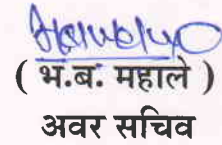 ( भ.ब. महाले )
अवर सचिव